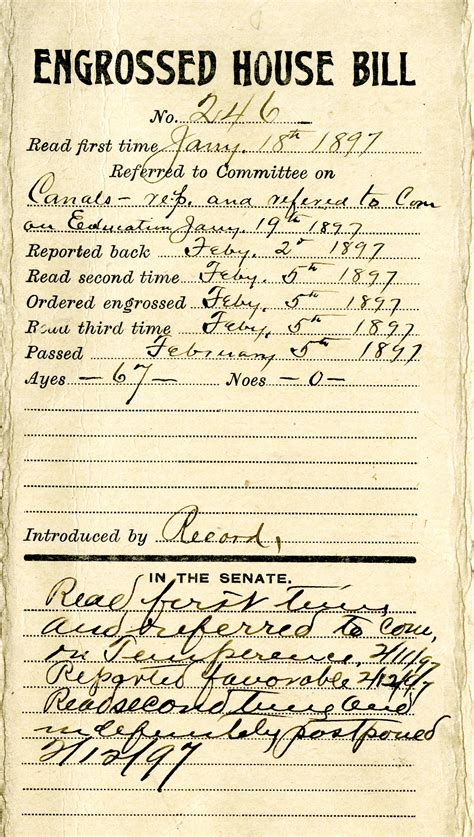 ENGROSSED HOUSE BILL
No. 246
Read first time Jany. 18th 1897
Referred to Committee on
Canals - rep. and refered to Com
on Education Jany. 19th 1897
Reported back Feby. 2d 1897
Read second time Feby. 5th 1897
Ordered engrossed Feby. 5th 1897
Read third time Feby. 5th 1897
Passed February 5th 1897
Ayes — 67 — Noes — 0 —
Introduced by Record,
IN THE SENATE.
Read first time
and referred to com,
on Temperence, 2/11/97
Reported favorable 2/12/97
Read second time and
indefinitely postponed
2/12/97